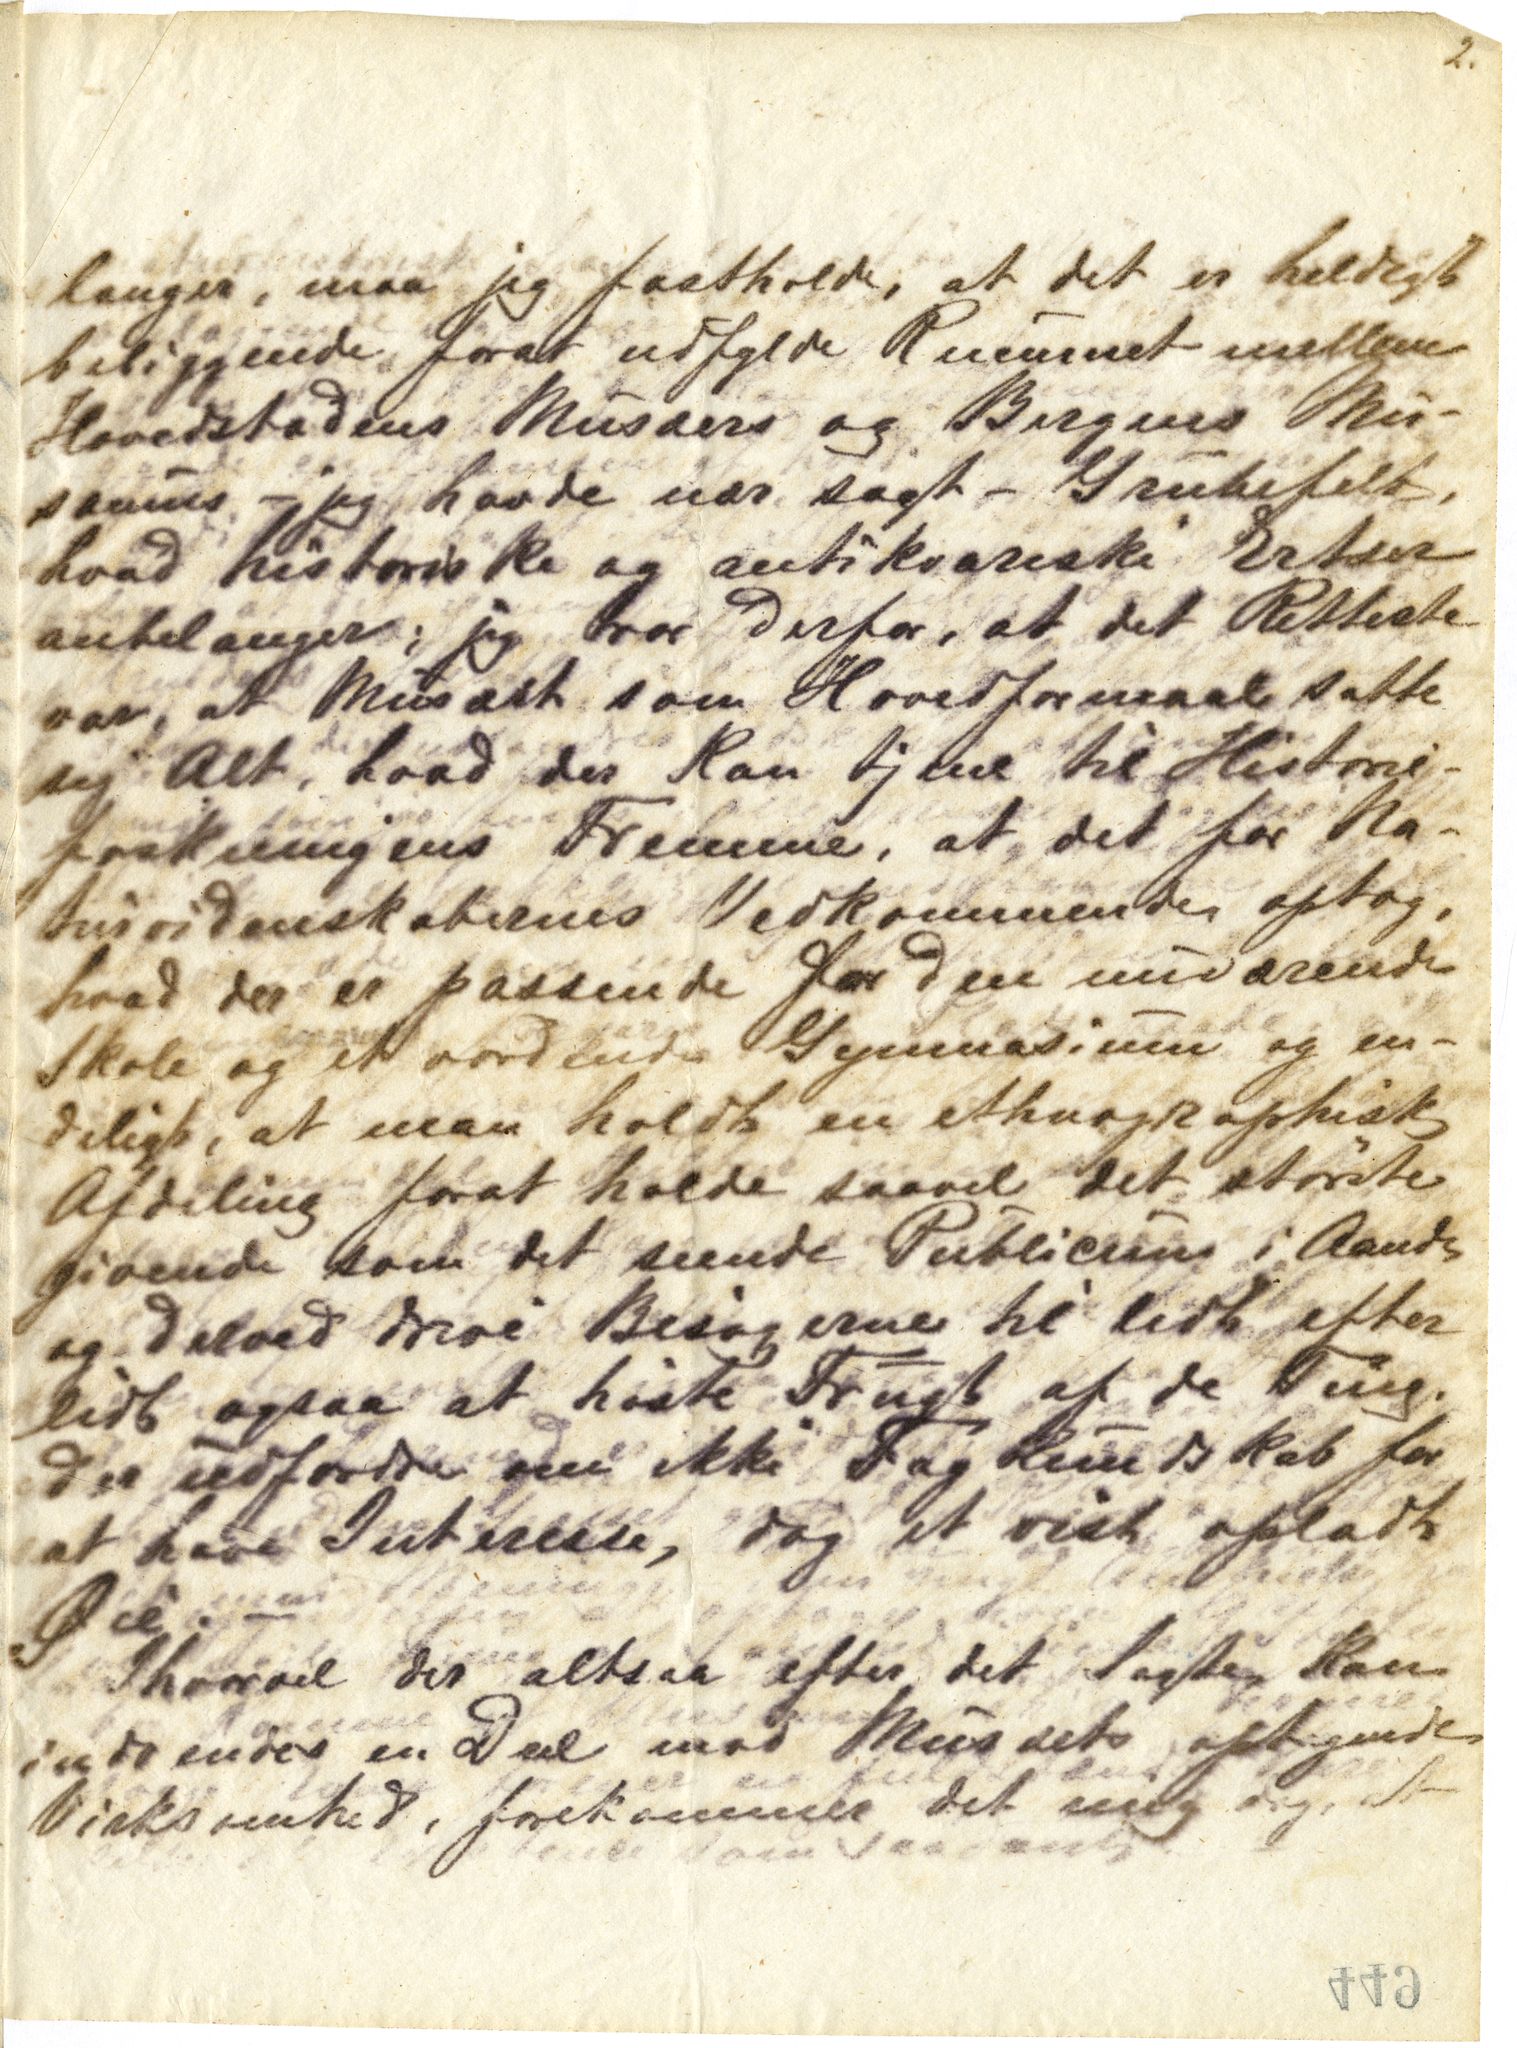 2.
langer, maa jeg fastholde, at det er heldigt
beliggende forat udfylde Rummet mellem
Hovedstadens Musæers og Bergens Mu-
sæums - jeg havde nær sagt - Grubefelt,
hvad historiske og antikvariske Ertser
anbelanger; jeg tror derfor, at det Retteste
var, at Musæet som Hovedformaal satte
sig Alt, hvad der kan tjene til Historie-
forskningens Fremme, at det for Na-
turvidenskabernes Vedkommende optog,
hvad der er passende for den nuværende
Skole og et vordende Gymnasium og en-
deligt, at man holdt en ethnographisk
Afdeling forat holde saavel det største
givende som det seende Publicum i Aande
og derved drive Besøgerne til lidt efter
lidt ogsaa at høste Frugt af de Ting,
der udfordre om ikke Fagkundskab for
at have Interesse, dog et vist opladt
Øie. -
Ihvorvel der altsaa efter det Sagte kan
indvendes en Deel mod Musæets
Virksomhed, forekommer det mig dog, at
449